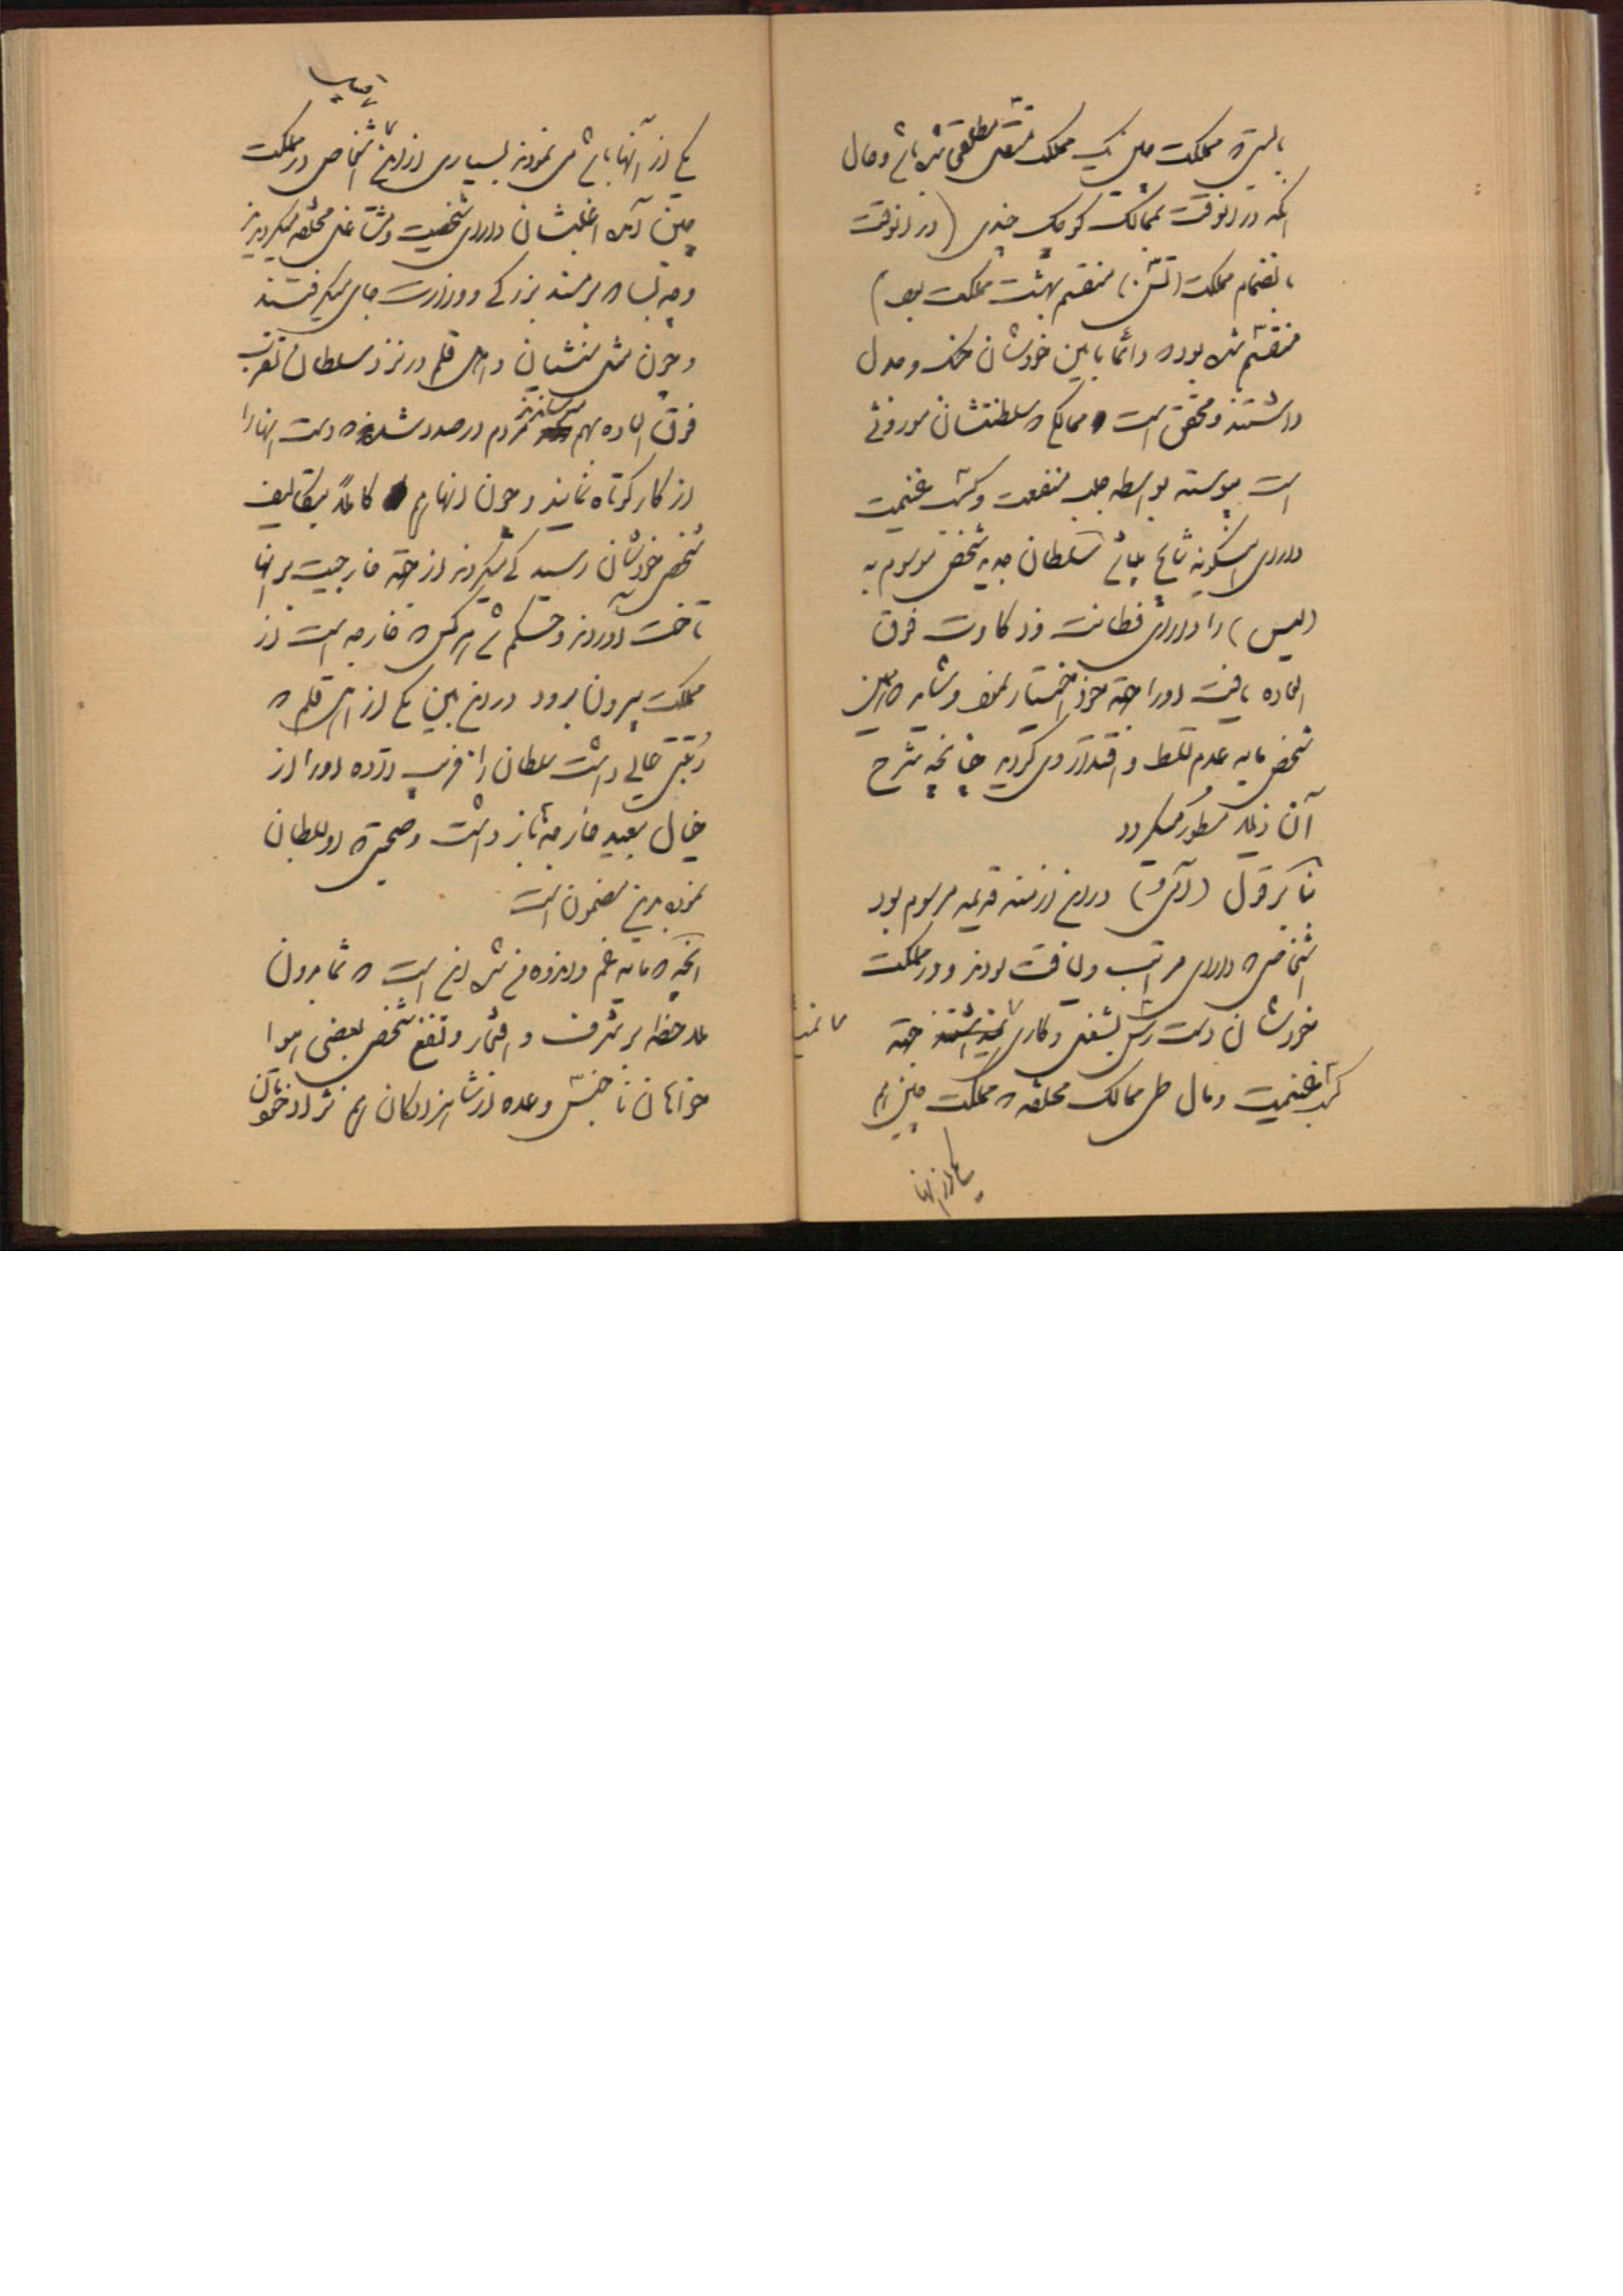 بایستی که مملکت چین یک مملکت مستقل مطلقی شده باشد و حال
آنکه در آنوقت بممالک کوچک چندی (در آنوقت
بانضمام مملکت (تسن) منقسم بهشت مملکت بود)
منقسم شده بود که دائماً مابین خودشان جنگ و جدل
داشتند و محقق است ممالکی که سلطنتشان موروثی
است پیوسته بواسطه جلب منفعت و کسب غنیمت
دارای اینگونه نتایج میباشد سلطان جدید شخص موسوم به
(لیس) را دارای فطانت و ذکاوت فوق
العاده یافت او را جهة خود اختیار نمود و شاید که همین
شخص مایه عدم تسلط و اقتدار وی گردید چنانچه شرح
آن ذیلاً مسطور میگردد
بنا بر قول در این ازمنه قدیمه مرسوم بود
اشخاصی که دارای مراتب و لیاقت بودند و در مملکت
خودشان دست رس بشغل و کاری جهة
کسب غنیمت و مال طی ممالک مختلفه که مملکت چین هم
یکی از آنها
یکی از آنها باشد می نمودند بسیاری از این اشخاص در مملکت
چین آمده اغلبشان دارای شخصیت و مشاغل مختلفه میگردیدند
و چه بسا که بر مسند بزرگی و وزارت جای میگرفتند
و چون مثل منشیان و اهل قلم در نزد سلطان تقرب
فوق العاده بهم رسانیدند مردم در صدد شدند که دست آنها را
از کار کوتاه نمایند و چون آنها هم کاملاً بتکالیف
شخص خودشان رسیدگی میکردند از جهة خارجیت بر آنها
تاخت آوردند و حکم شد هر کس که خارجه است از
مملکت بیرون برود در این بین یکی از اهل قلم که
رتبتی عالی داشت سلطان را فریب داده او را از
خیال تبعید خارجه باز داشت و صحبتی که او بسلطان
نمود بدین مضمون است
آنچه که مایه غم و اندوه من شده این است که شما بدون
ملاحظه بر شرف و افتخار و نفع شخص بعضی اهوا
خواهان ناجنس و عده از شاهزادگان هم نژاد خودتان